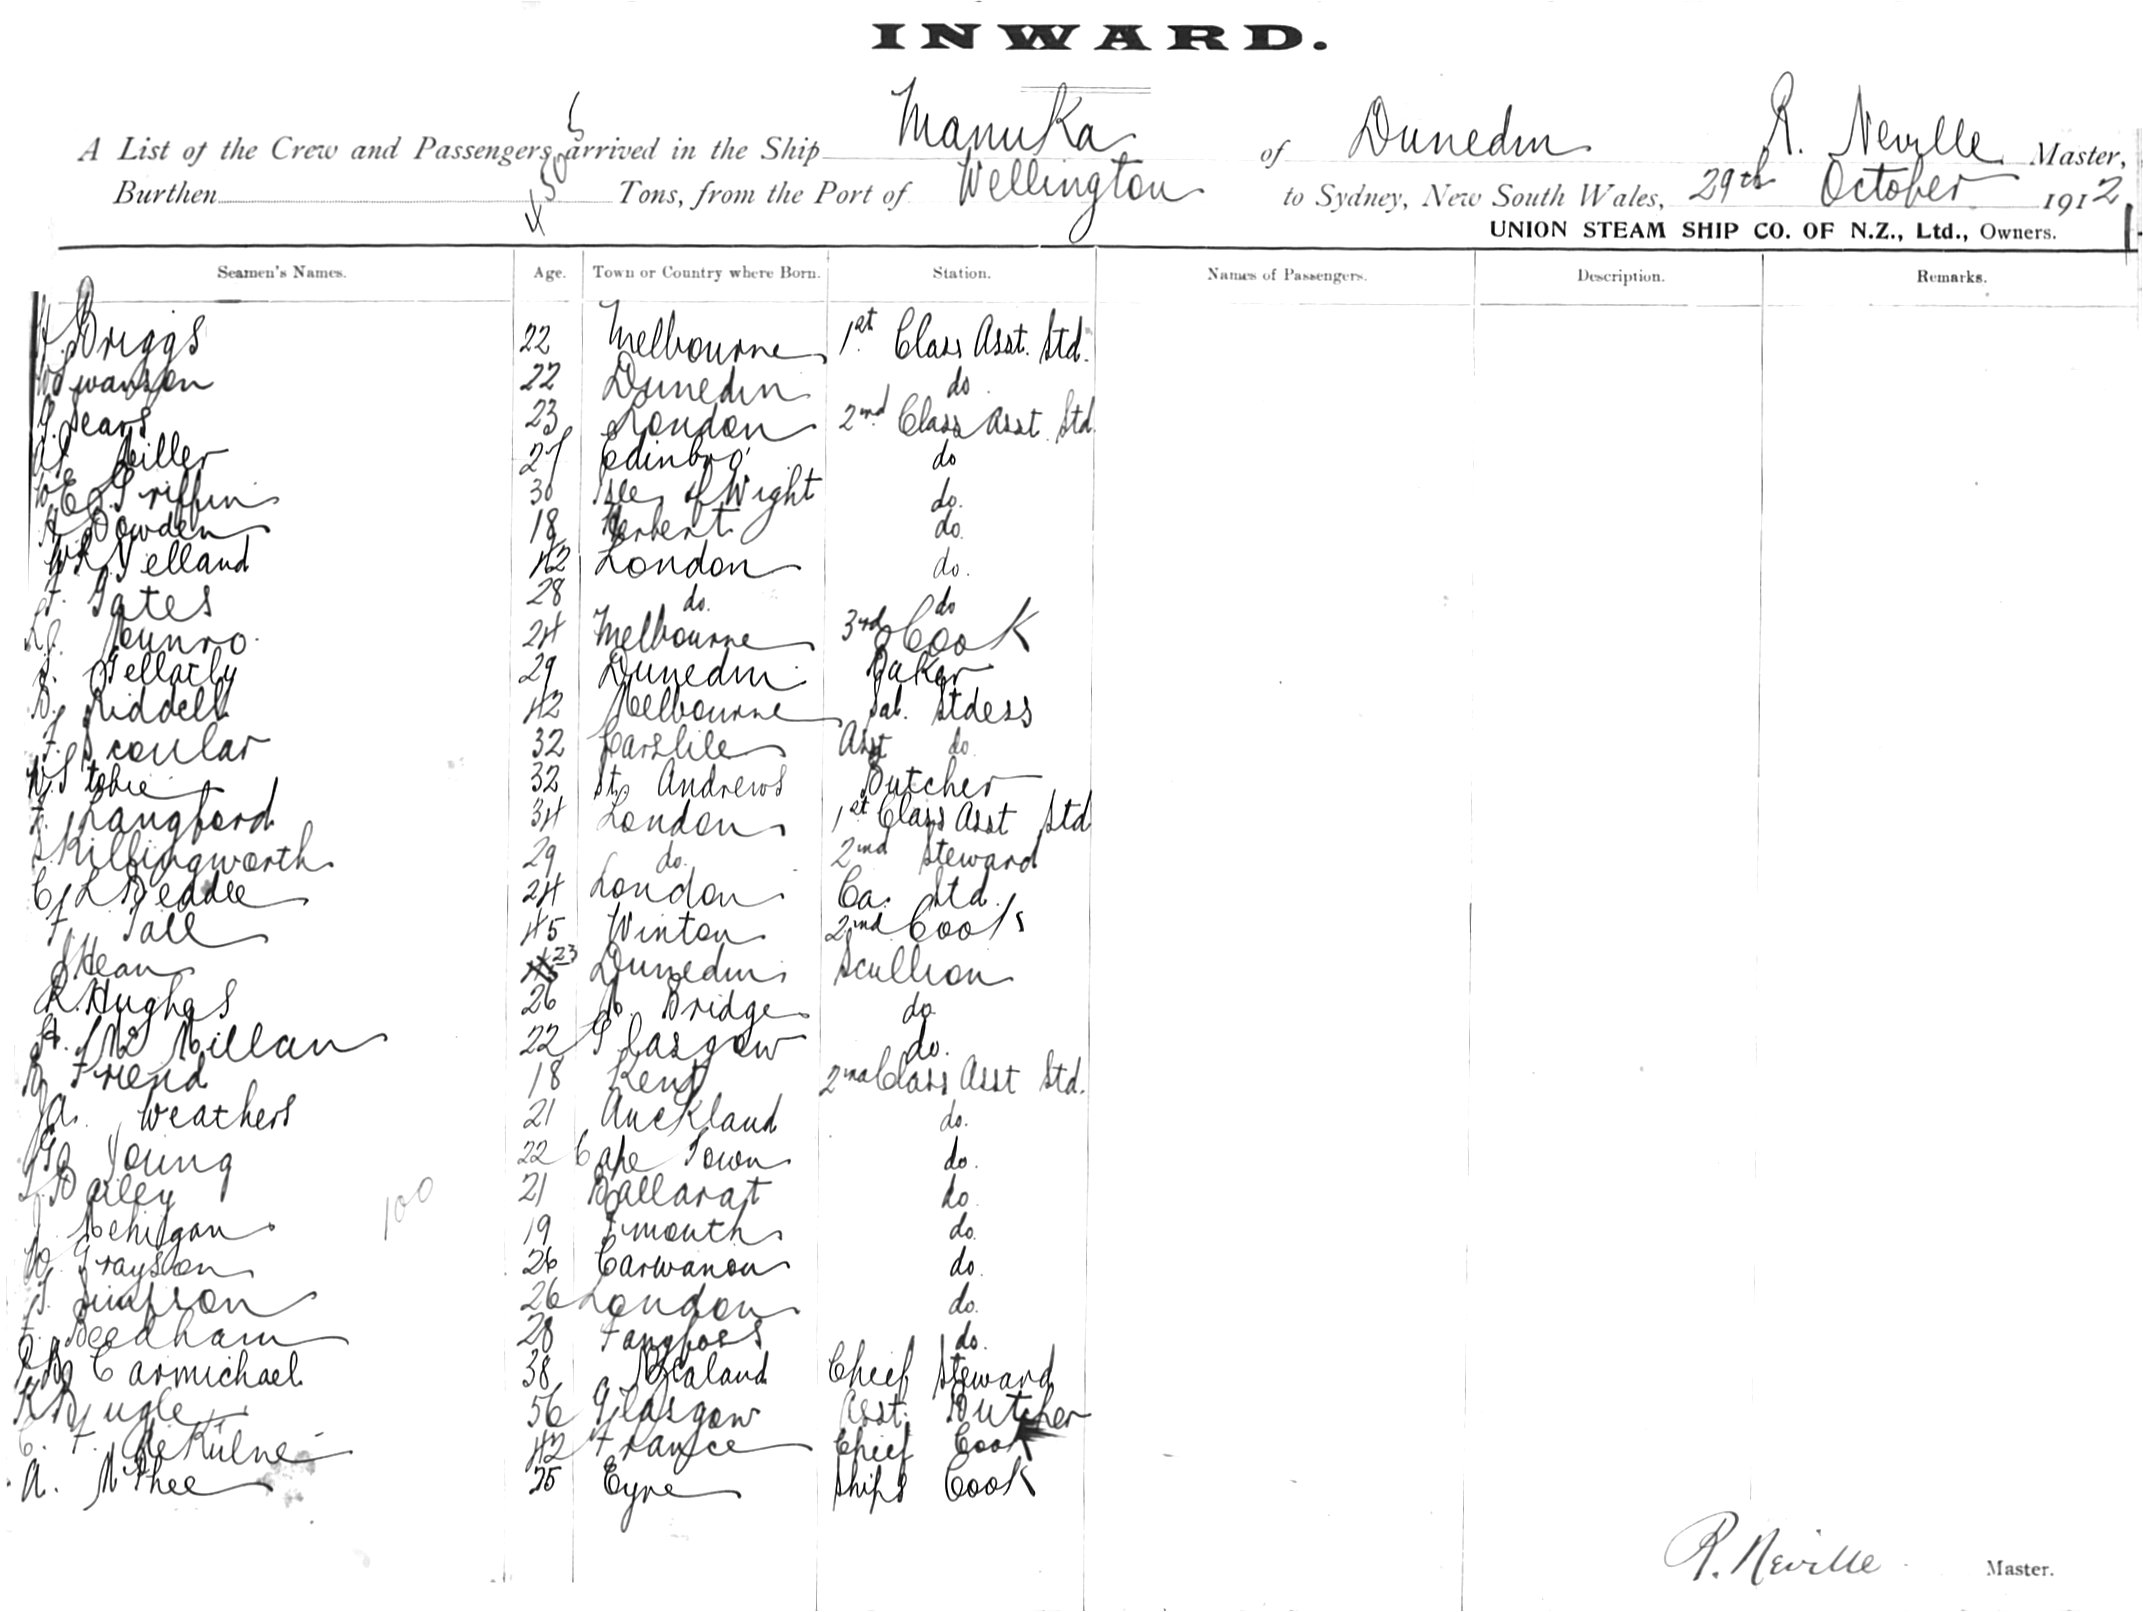 INWARD.
A List of the Crew and Passengers arrived in the Ship Manuka of Dunedin R. Neville Master,
Burthen 4505 Tons, from the Port of Wellington to Sydney, New South Wales, 29th October 1912
UNION STEAM SHIP CO. OF N.Z., Ltd., Owners.
Seamen's Names. Age. Town or Country where Born. Station. Names of Passengers. Description. Remarks.
Briggs 22 Melbourne 1st Class Asst. Std.
Swanson 22 Dunedin do.
G. Sears 23 London 2nd Class Asst. Std
Miller 27 Edinbro' do
W E Griffin 30 Isle of Wight do.
A Bowden 18 Herbert do.
Yelland 42 London do.
F. Gates 28 do. do
Munro. 24 Melbourne 3rd Cook
Gellatly 29 Dunedin Baker
Riddell 42 Melbourne Sal. Stdess
F. Scoular 32 Carslile Asst do.
Stobie 32 St. Andrews Butcher
F. Langford 34 London 1st Class Asst Std
Killingworth 29 do. 2nd Steward
C L Beddle 24 London Ca. Std.
F. Tall 45 Winton 2nd Cook
Hean 23 Dunedin Scullion
R. Hughes 26 Bridge do.
A. Mc Millan 22 Glasgow do.
Friend 18 Kent 2nd Class Asst Std.
A. Weathers 21 Auckland do.
Young 22 Cape Town do.
Bailey 21 Ballarat do.
100
Mehigan 19 do.
W. Grayson 26 do.
Simpson 26 London do.
Beedham 28 Fangfoss do.
Carmichael 38 Chief Steward
Pugle 56 Glasgow Asst. Butcher
C. F. 42 France Chief Cook
A. McPhee 25 Eyre Ships Cook
R. Neville Master.